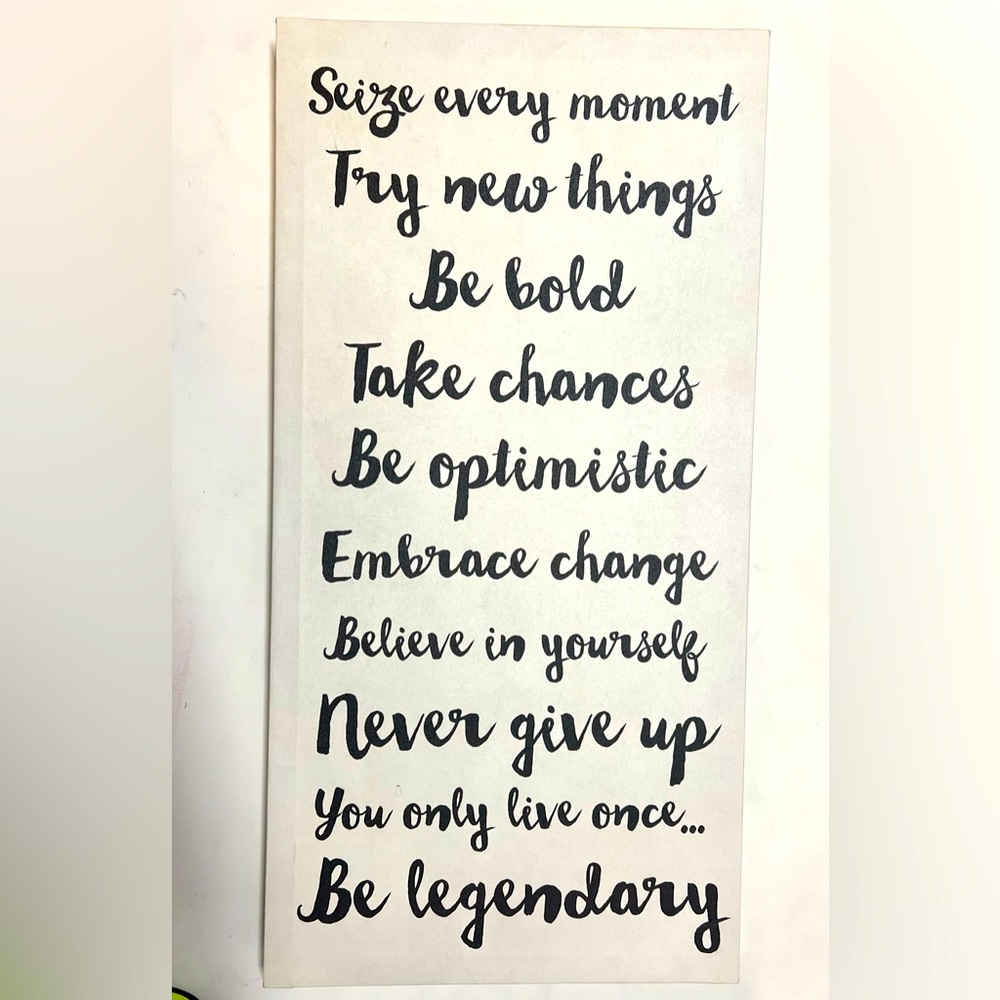 Seize every moment
Try new things
Be bold
Take chances
Be optimistic
Embrace change
Believe in yourself
Never give up
You only live once...
Be legendary